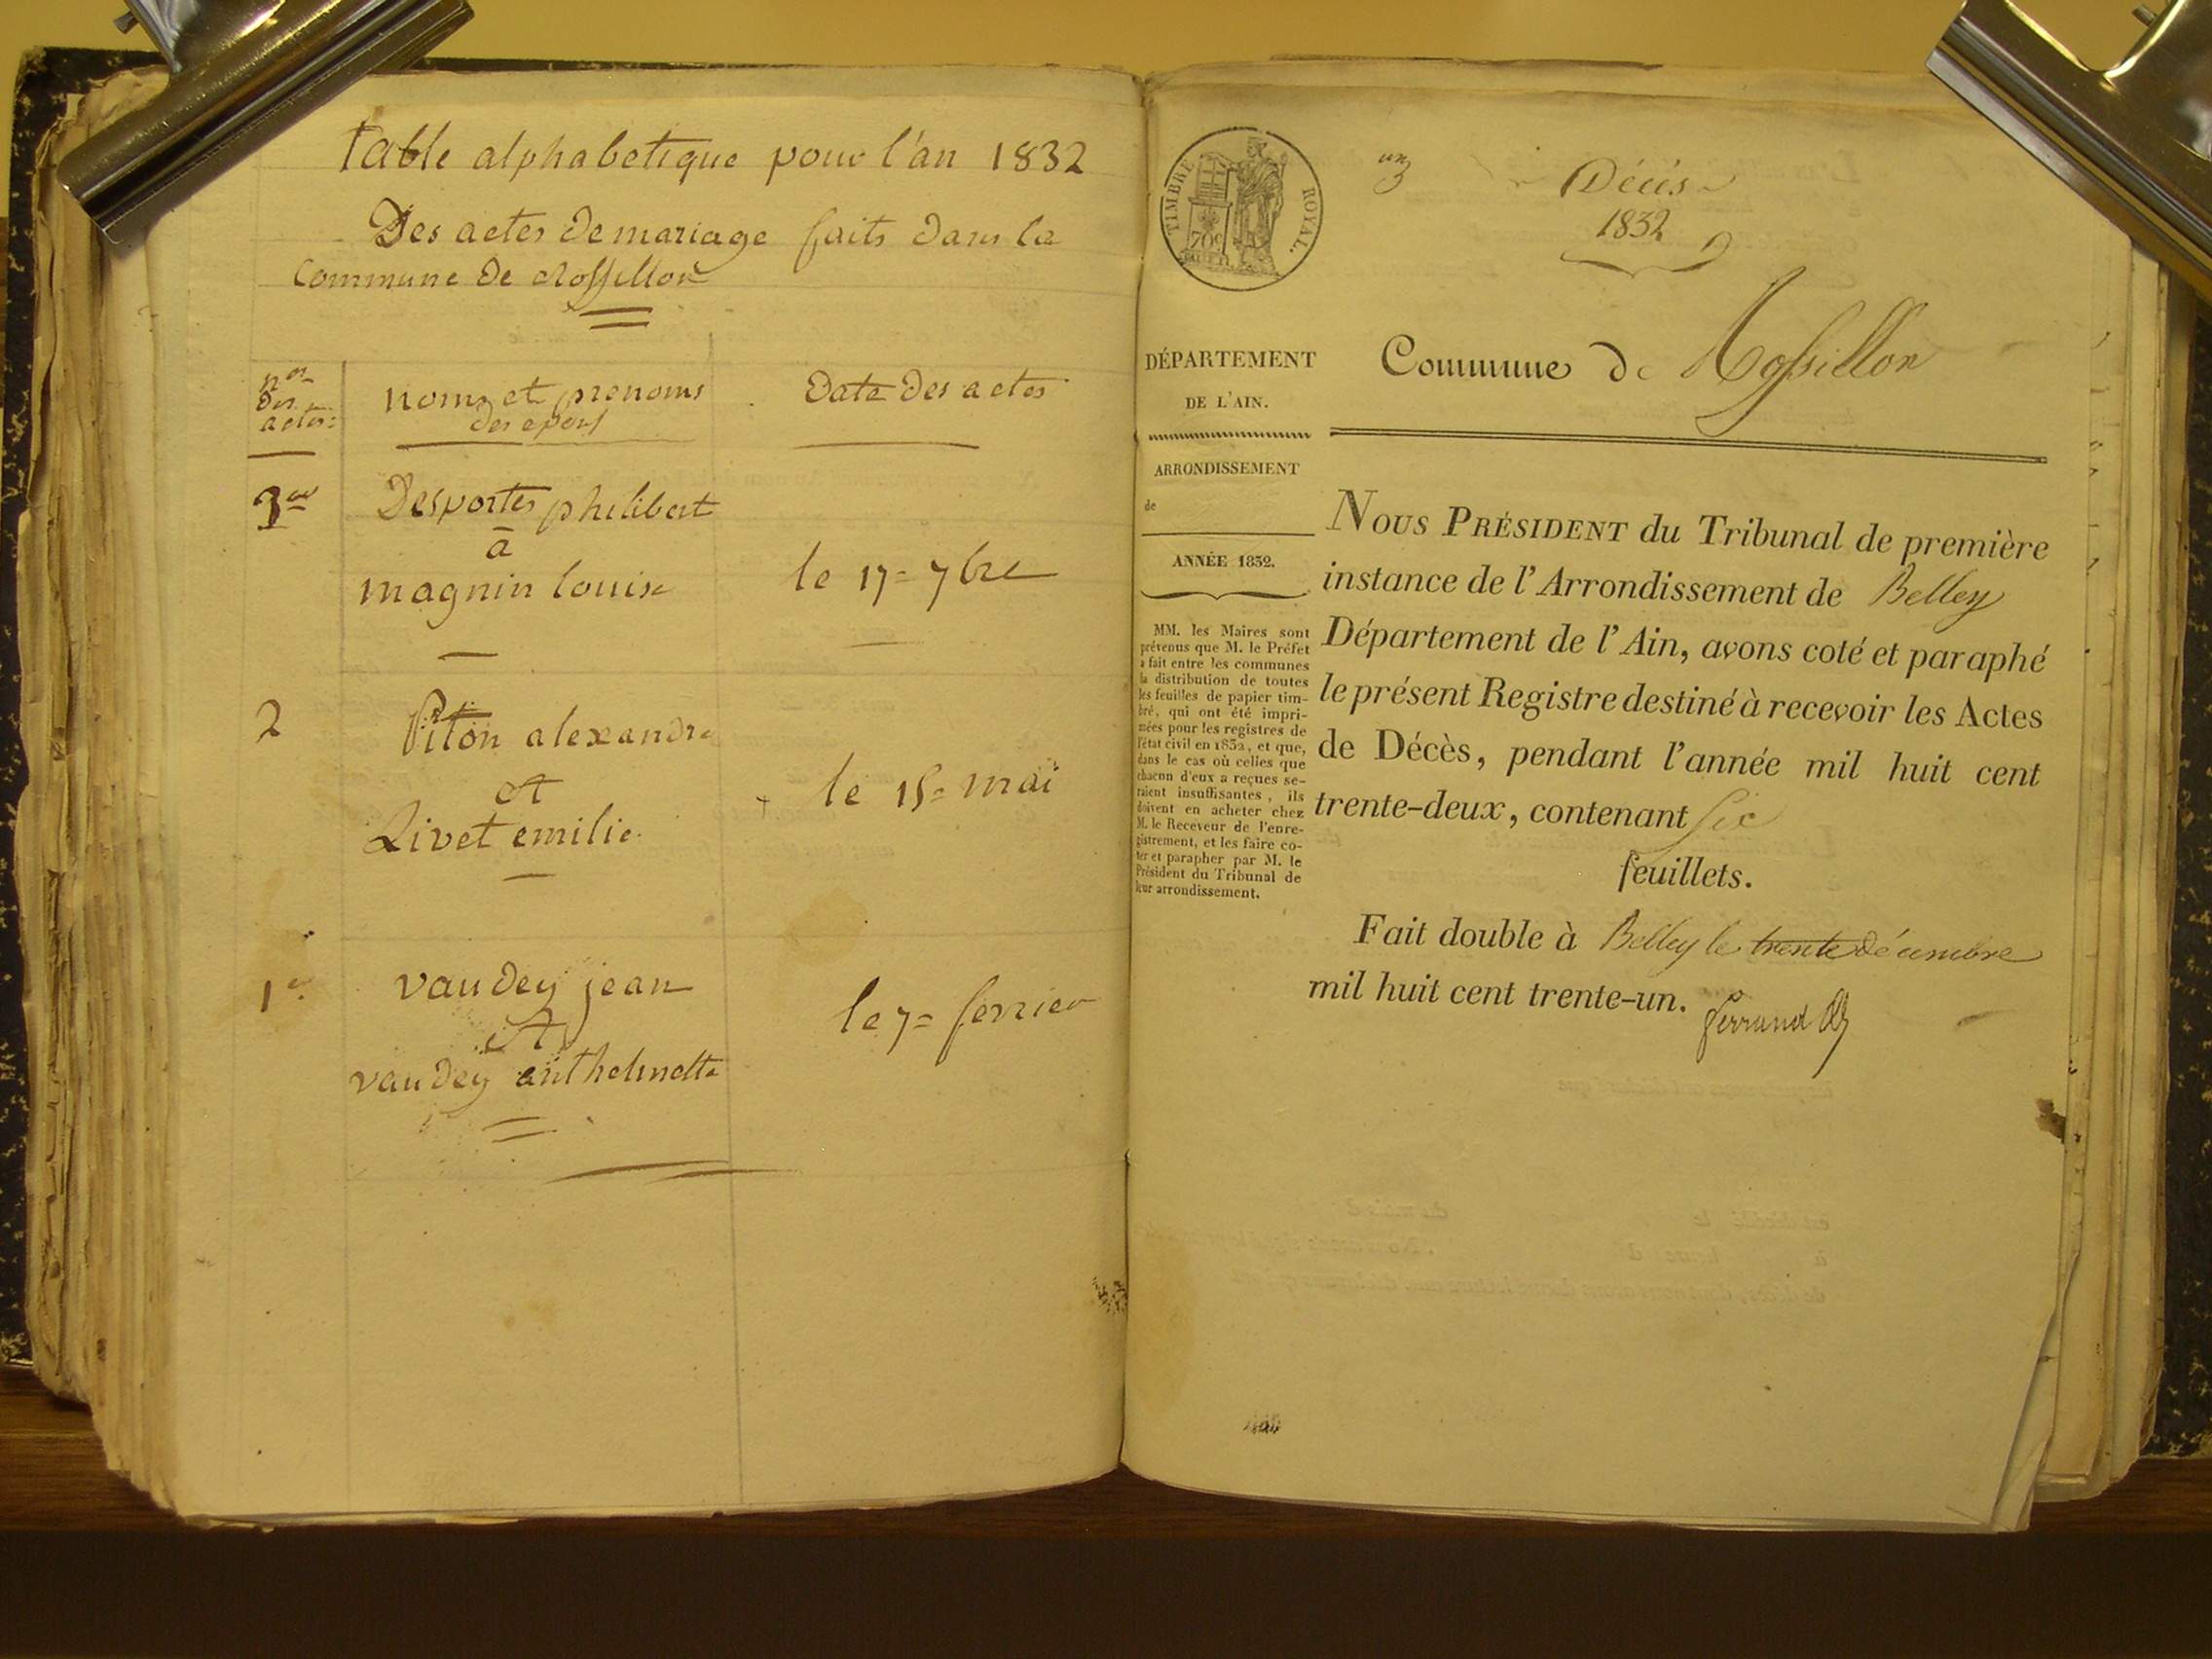 table alphabetique pour l'an 1832
Des actes de mariage faits dans la
Commune de Rossillon
nos
des
actes
noms et prenoms
des epoux
Date des actes
3
Desportes philibert
a
magnin louise
le 17 = 7bre
2
Piton alexandre
et
Livet emilie
le 15 = mai
1
vaudey jean
et
vaudey anthelmette
le 7 = fevrier
TIMBRE ROYAL.
70c
un
Décès
1832
Commune de Rossillon
DÉPARTEMENT
DE L'AIN.
ARRONDISSEMENT
de
ANNÉE 1832.
MM. les Maires sont
prévenus que M. le Préfet
a fait entre les communes
la distribution de toutes
les feuilles de papier tim-
bré, qui ont été impri-
mées pour les registres de
l'état civil en 1832, et que,
dans le cas où celles que
chacun d'eux a reçues se-
raient insuffisantes, ils
doivent en acheter chez
M. le Receveur de l'enre-
gistrement, et les faire co-
ter et parapher par M. le
Président du Tribunal de
leur arrondissement.
NOUS PRÉSIDENT du Tribunal de première
instance de l'Arrondissement de Belley
Département de l'Ain, avons coté et paraphé
le présent Registre destiné à recevoir les Actes
de Décès, pendant l'année mil huit cent
trente-deux, contenant Six
feuillets.
Fait double à Belley le trente décembre
mil huit cent trente-un.
ferrand